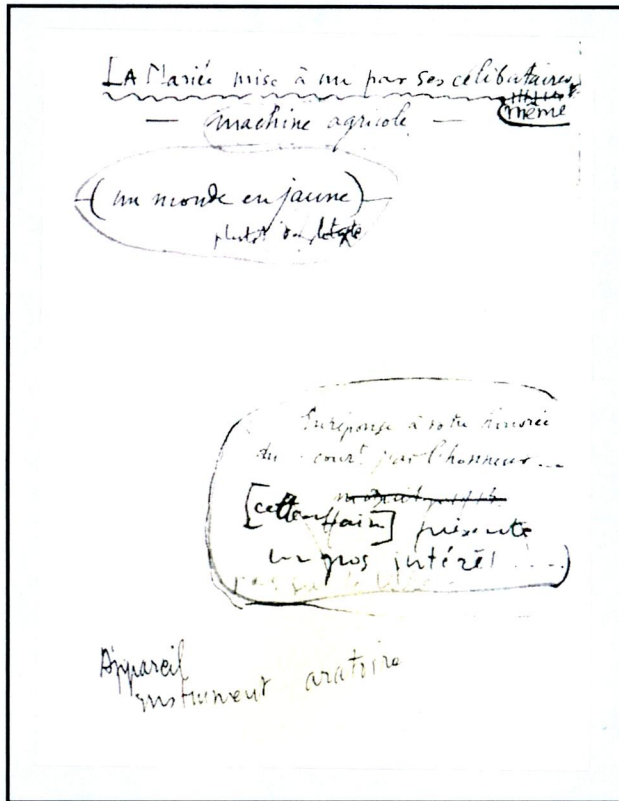 LA Mariée mise à nu par ses célibataires,
même
— machine agricole —
(un monde en jaune)
plutôt
En réponse à votre honorée
du courᵗ j'ai l'honneur ...
[cette affaire] présente
un gros intérêt .....)
Appareil
instrument aratoire